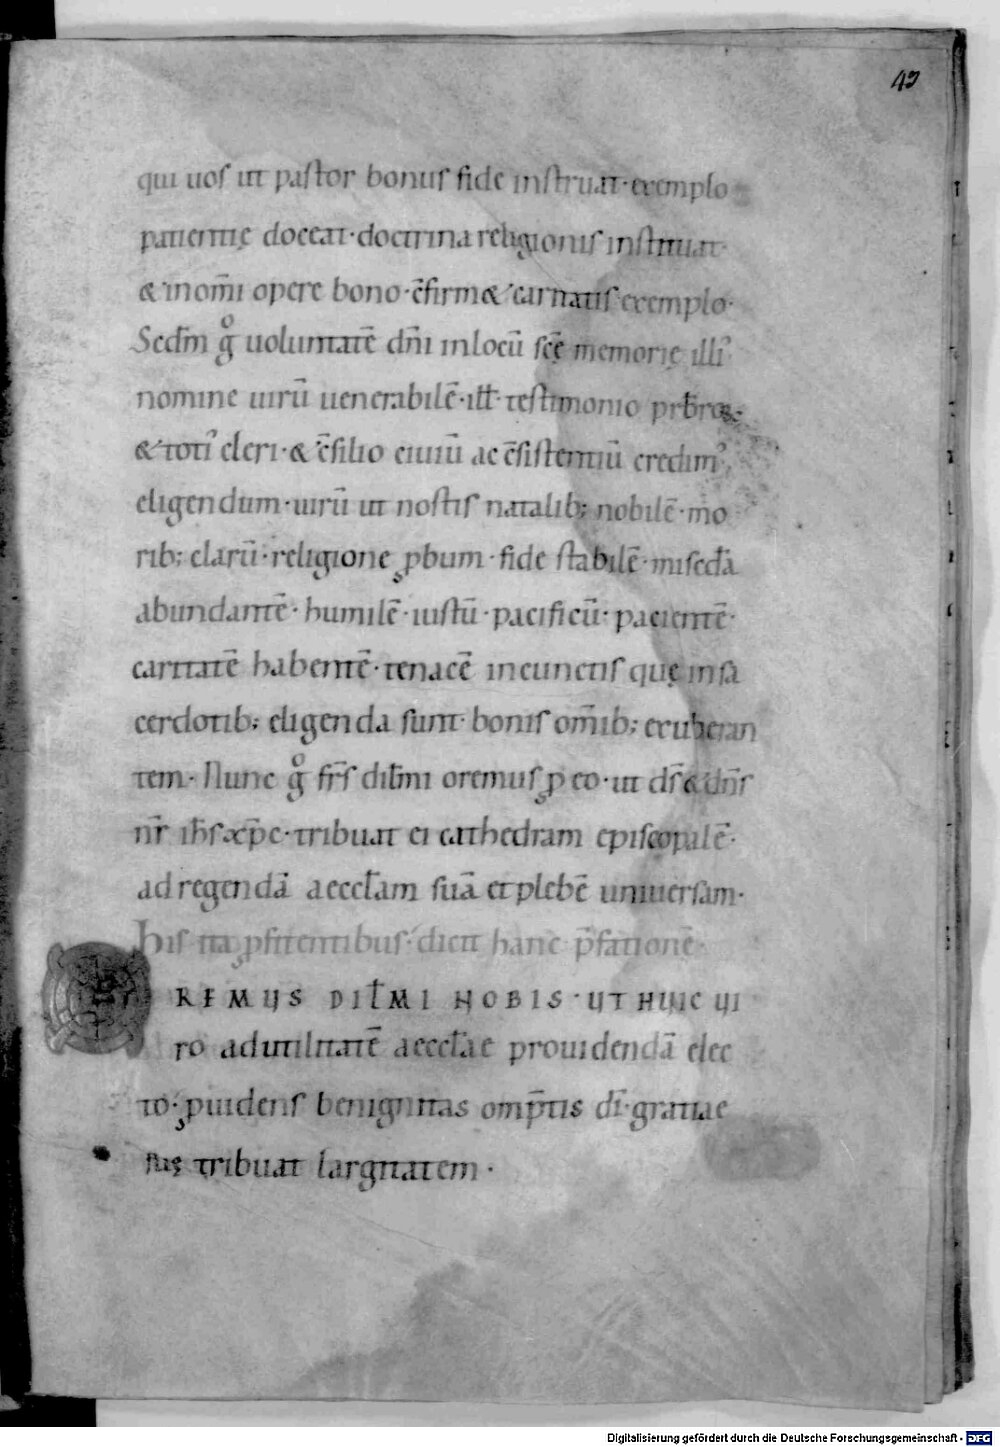 43
qui uos ut pastor bonus fide instruat · exemplo
patientię doceat · doctrina religionis instituat ·
& in om̄i opere bono · c̄firm& caritatis exemplo ·
Secd̄m gͦ uoluntatē dn̄i in locū scę̄ memorię illiꝰ
nomine uirū uenerabilē · ill̄ · testimonio prb̄roꝝ ·
& totiꝰ cleri · & c̄silio ciuiū ac c̄sistentiū credimꝰ
eligendum · uirū ut nostis natalib; nobilē · mo
rib; clarū · religione ꝓbum · fide stabilē · misedā
abundantē · humilē · iustū · pacificū · pacientē ·
caritatē habentē · tenacē in cunctis quę in sa
cerdotib; eligenda sunt · bonis om̄ib; exuberan
tem · Nunc gͦ fr̄s dil̄mi oremus ꝓ eo · ut ds̄ & dn̄s
nr̄ ih̄s xp̄c · tribuat ei cathedram episcopalē ·
ad regendā aeccl̄am suā et plebē uniuersam ·
His ita ꝓfitentibus · dicit hanc p̄fationē ·
OREMUS DIL̄MI NOBIS · UT HUIC UI
ro ad utilitatē aeccl̄ae prouidendā elec
to · ꝓuidens benignitas omp̄tis dī · gratiae
suę tribuat largitatem ·
Digitalisierung gefördert durch die Deutsche Forschungsgemeinschaft - DFG